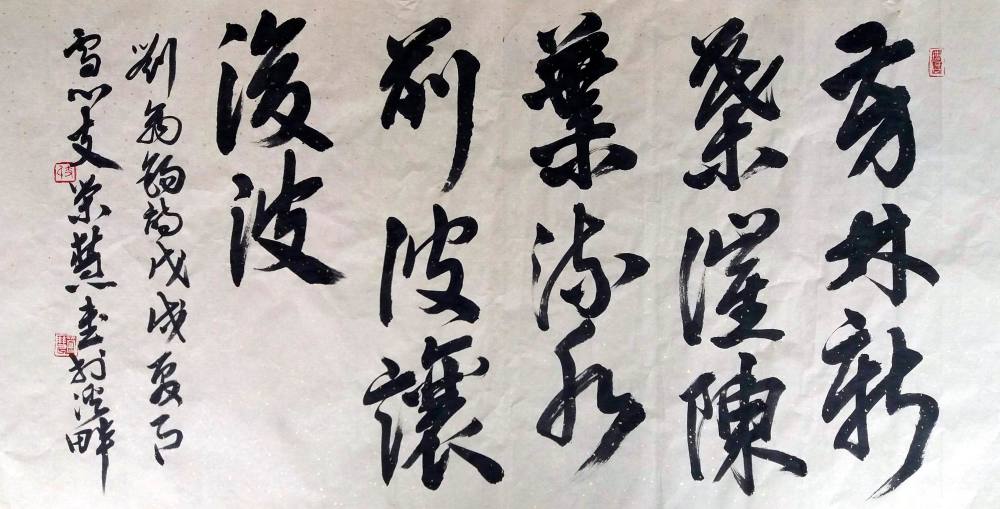 芳林新
葉催陳
葉流水
前波讓
後波
劉禹錫詩戊戌夏月
雪心支榮慧書於畔